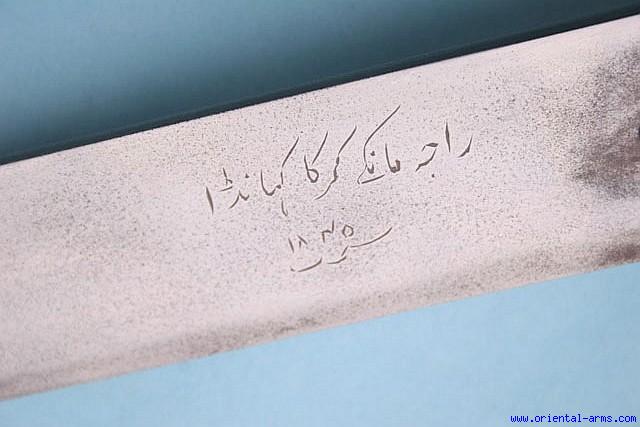 راجہ مانکے کمر کا کہانڈا
www.oriental-arms.com